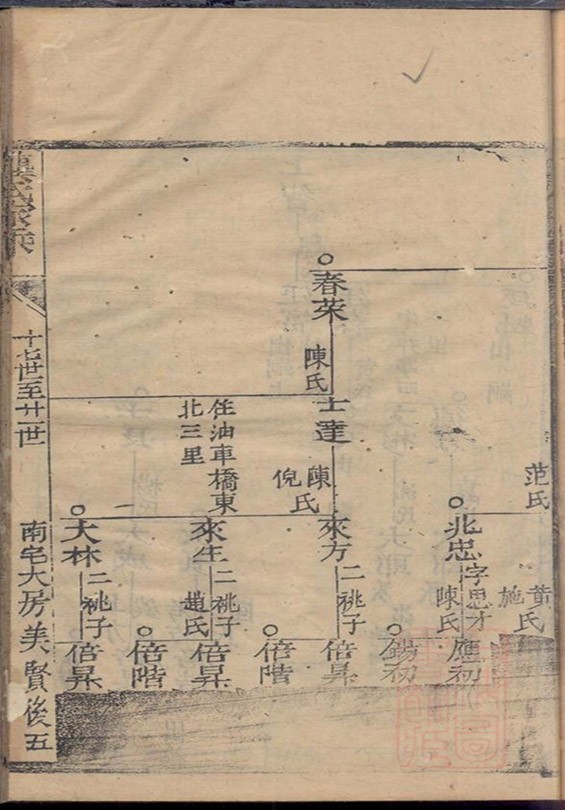 范氏
黄氏
施
兆忠
字思才
陳氏
應初
錫初
春荣
陳氏
士達
陳氏
倪
來方
二祧子
倍昇
倍階
住油車橋東
北三里
來生
二祧子
趙氏
倍昇
倍階
大林
二祧子
倍昇
十七世至廿一世
南宅大房美賢後五